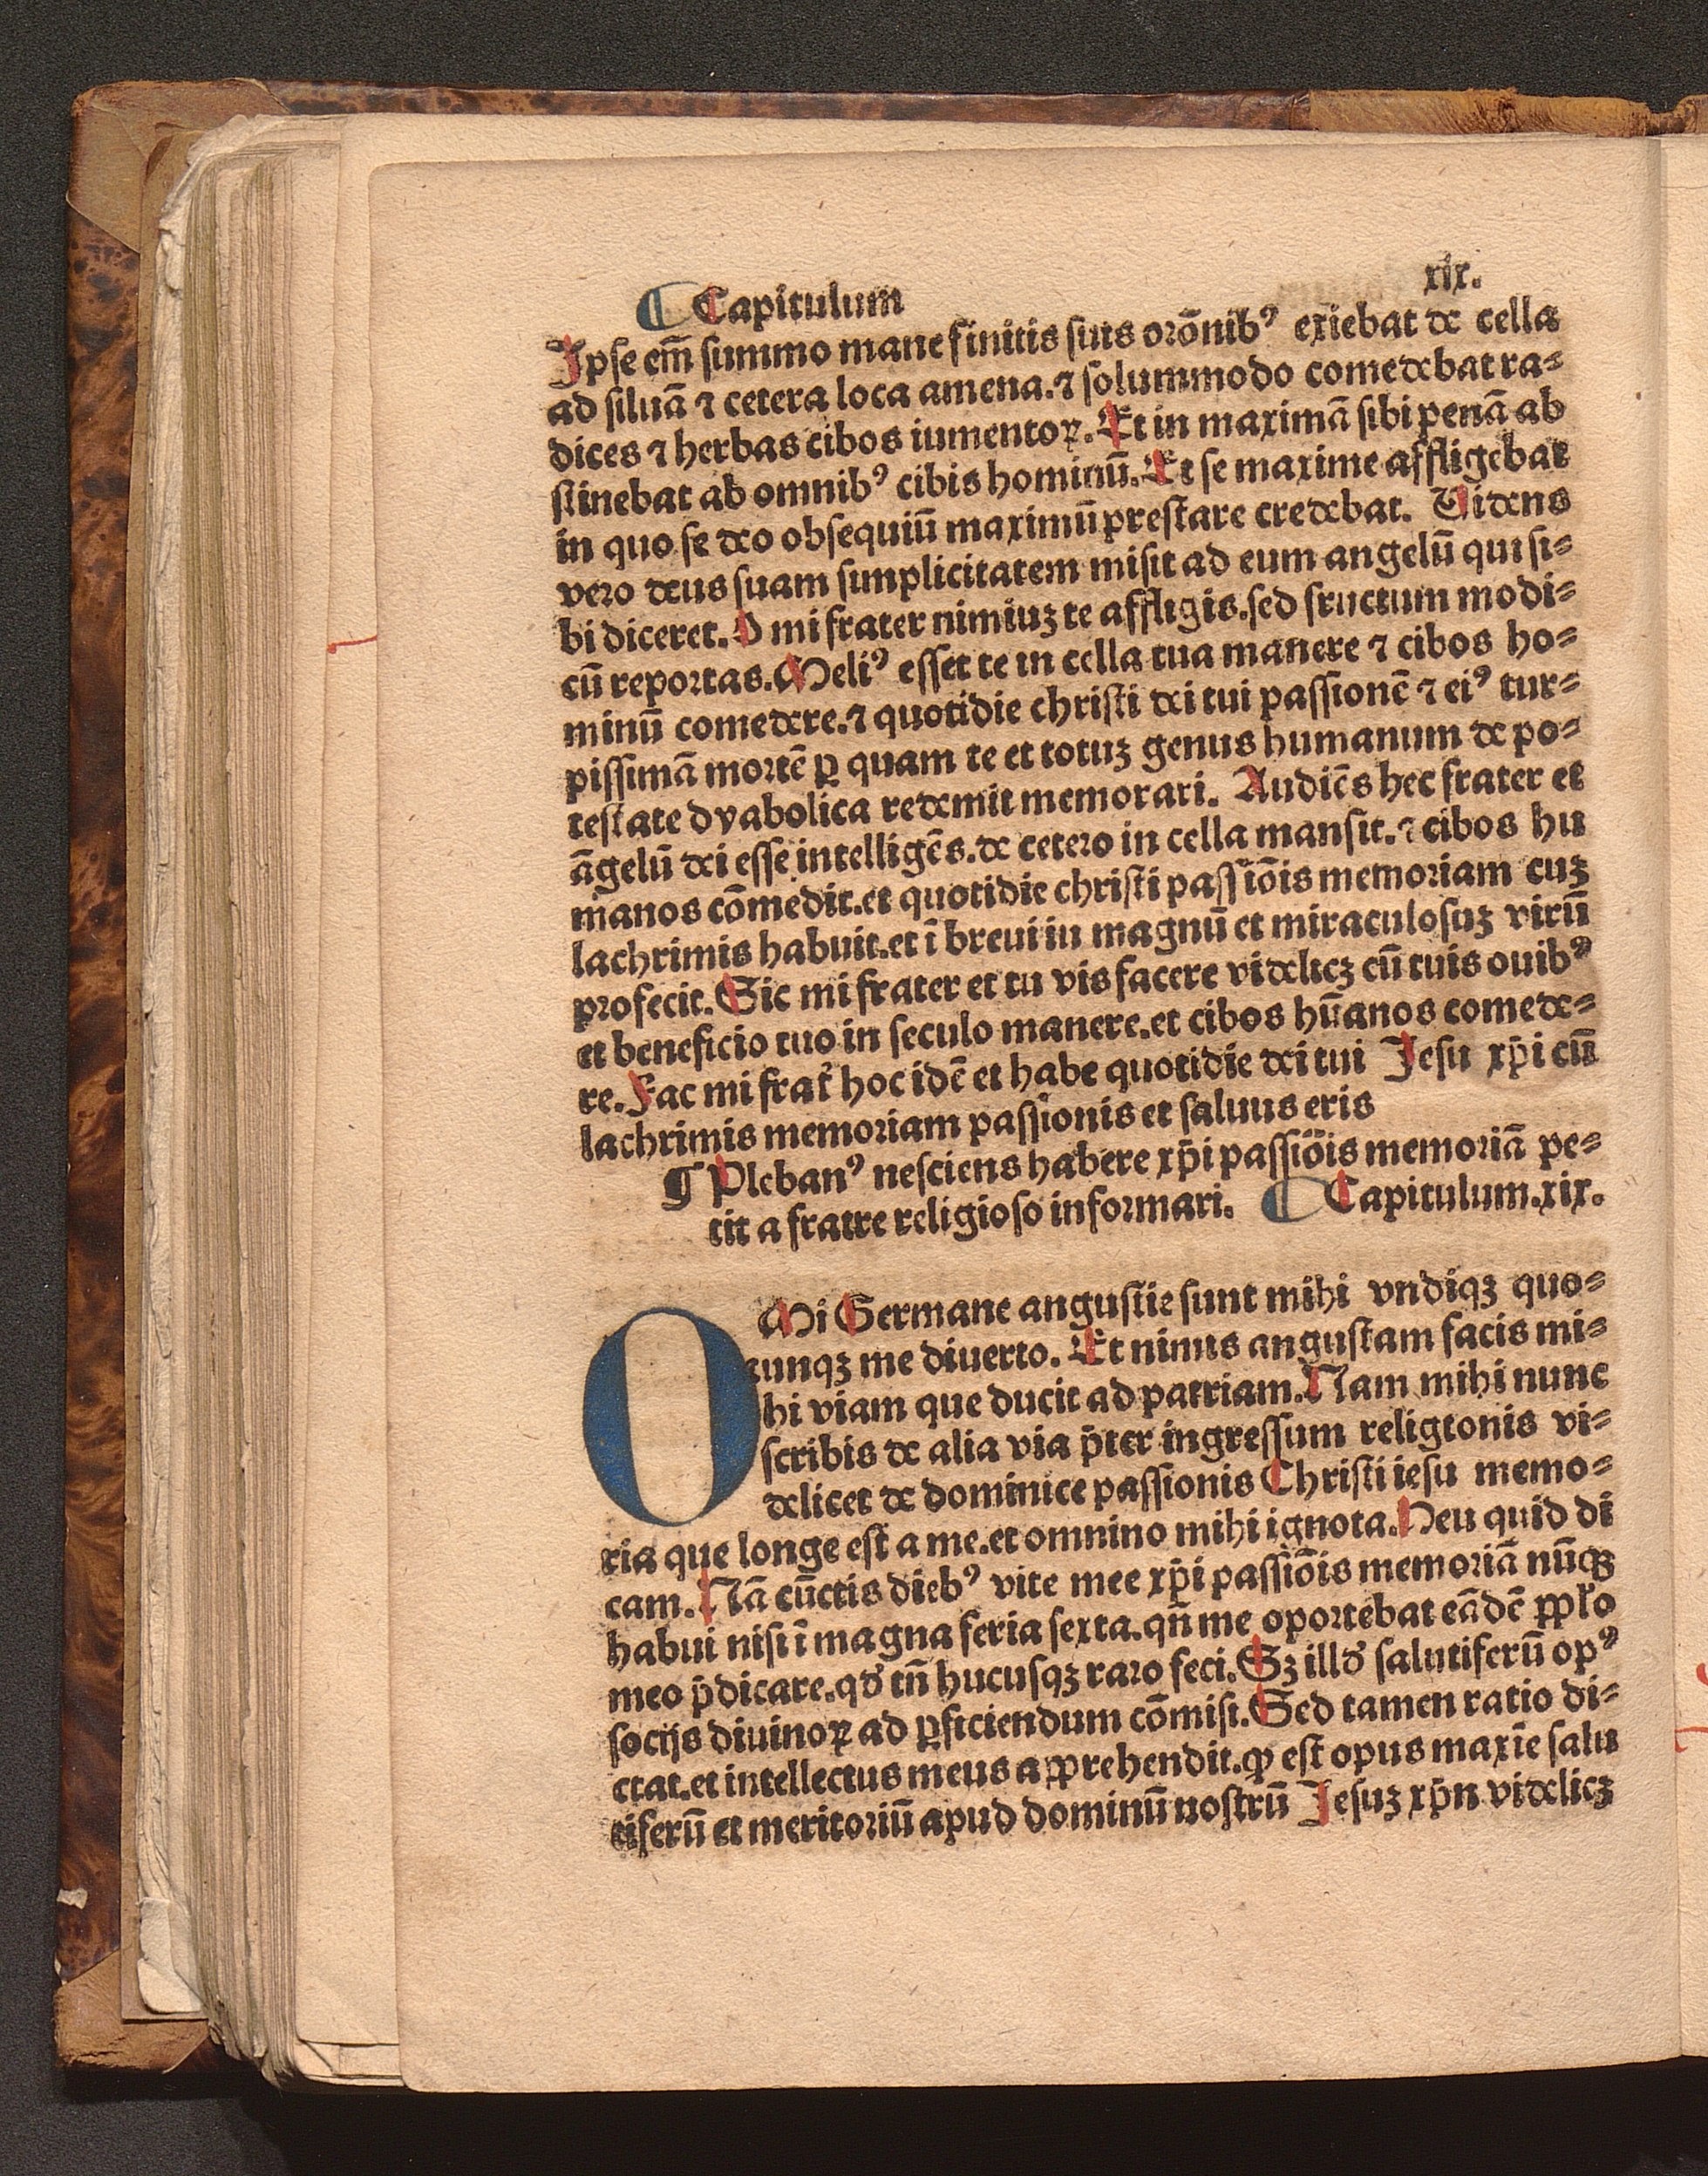 ¶ Capitulum xix.
Ipse em̄ summo mane finitis suis orōnibꝰ exiebat de cella
ad siluā ⁊ cetera loca amena.⁊ solummodo comedebat ra⸗
dices ⁊ herbas cibos iumentoꝝ. Et in maximā sibi penā ab
stinebat ab omnibꝰ cibis hominū. Et se maxime affligebat
in quo se deo obsequiū maximū prestare credebat. Uidens
vero deus suam simplicitatem misit ad eum angelū qui si⸗
bi diceret. O mi frater nimiuꝫ te affligis.sed fructum modi⸗
cū reportas. Meliꝰ esset te in cella tua manere ⁊ cibos ho⸗
minū comedere.⁊ quotidie christi dei tui passionē ⁊ eiꝰ tur⸗
pissimā mortē ꝑ quam te et totuꝫ genus humanum de po⸗
testate dyabolica redemit memorari. Audiēs hec frater et
āgelū dei esse intelligēs.de cetero in cella mansit.⁊ cibos hu
manos cōmedit.et quotidie christi passiōis memoriam cuꝫ
lachrimis habuit.et ī breui in magnū et miraculosuꝫ virū
profecit. Sic mi frater et tu vis facere videlicꝫ cū tuis ouibꝰ
et beneficio tuo in seculo manere.et cibos hūanos comede⸗
re. Fac mi frat̓ hoc idē et habe quotidie dei tui Jesu xp̄i cū
lachrimis memoriam passionis et saluus eris
¶ Plebanꝰ nesciens habere xp̄i passiōis memoriā pe⸗
tit a fratre religioso informari. ¶ Capitulum.xix.
O Mi Germane angustie sunt mihi vndiqꝫ quo⸗
cunqꝫ me diuerto. Et nimis angustam facis mi⸗
hi viam que ducit ad patriam. Nam mihi nunc
scribis de alia via p̄ter ingressum religionis vi⸗
delicet de dominice passionis Christi iesu memo⸗
ria que longe est a me.et omnino mihi ignota. Heu quid di
cam. Nā cūctis diebꝰ vite mee xp̄i passiōis memoriā nūqꝫ
habui nisi ī magna feria sexta.qn̄ me oportebat eādē ppło
meo p̄dicare.qđ tn̄ hucusqꝫ raro feci. Sꝫ illđ salutiferū opꝰ
socijs diuinoꝝ ad ꝑficiendum cōmisi. Sed tamen ratio di⸗
ctat.et intellectus meus apprehendit.ꝙ est opus maxīe salu
tiferū et meritoriū apud dominū nostrū Jesuꝫ xp̄n videlicꝫ